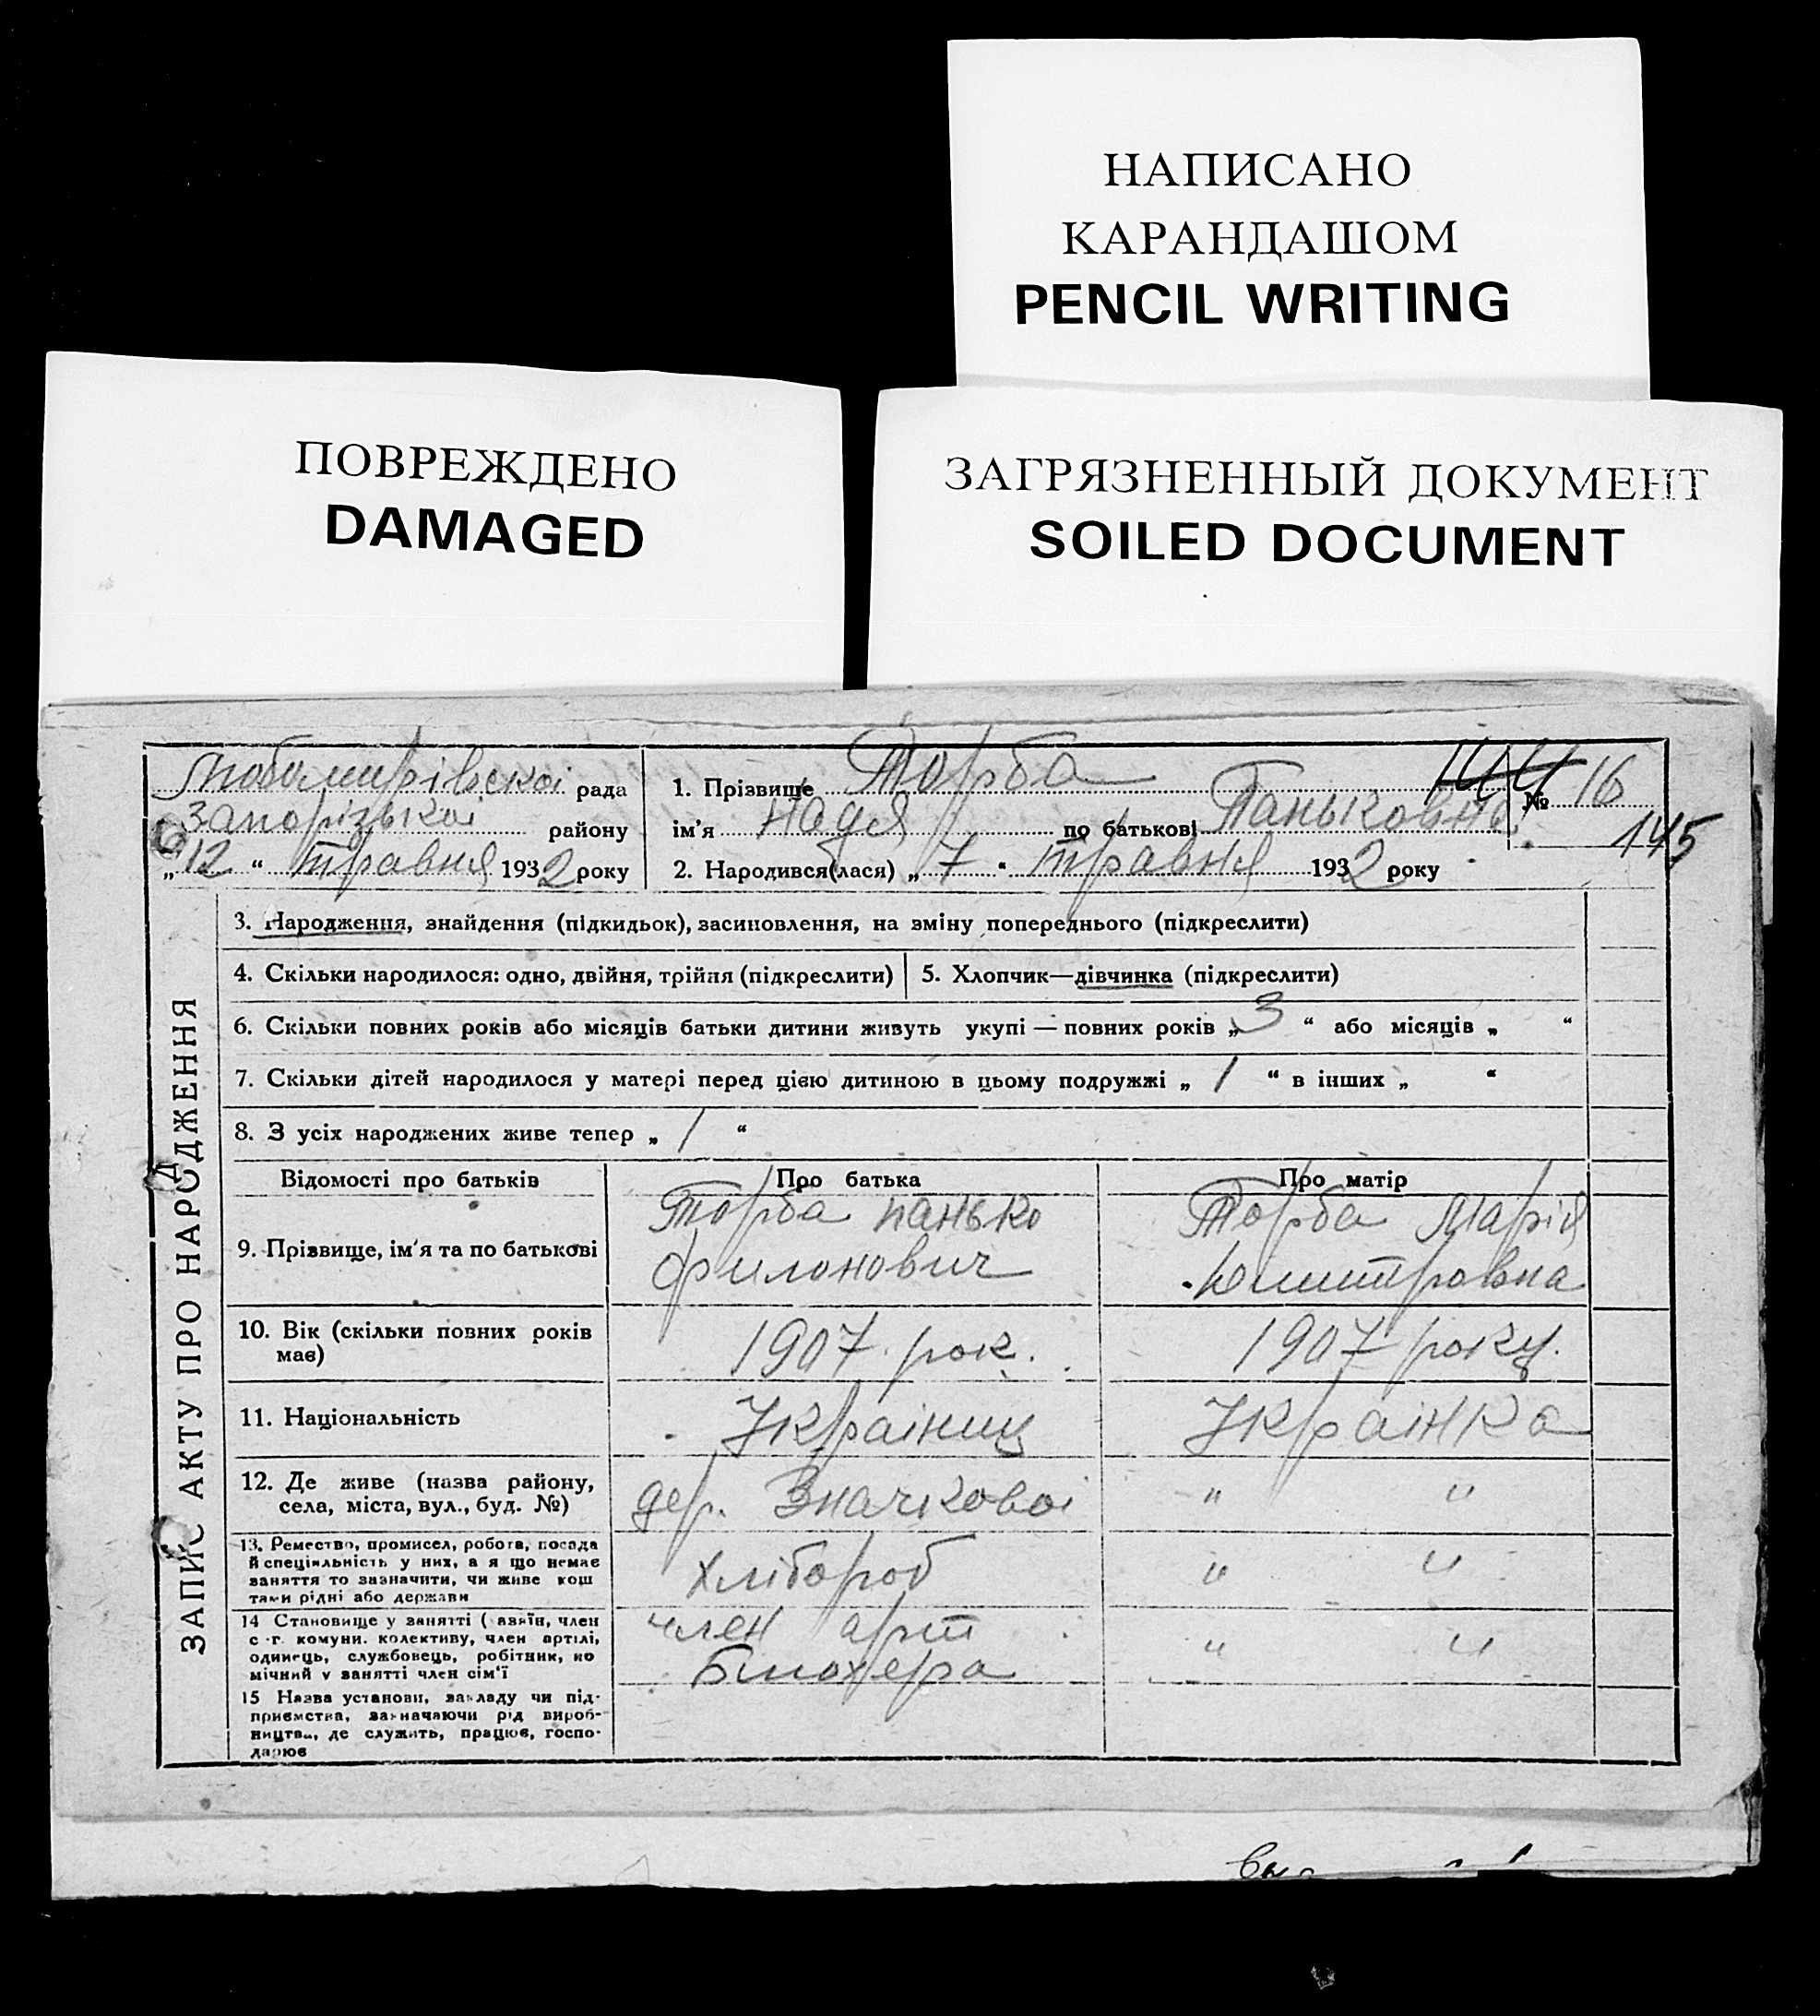 НАПИСАНО
КАРАНДАШОМ
PENCIL WRITING
ПОВРЕЖДЕНО
DAMAGED
ЗАГРЯЗНЕННЫЙ ДОКУМЕНТ
SOILED DOCUMENT
Любомирівскоі рада
Запорізькоі району
„12“ травня 1932 року
1. Прізвище Торба
ім'я Надя по батькові Паньковна
2. Народився(лася) „7“ травня 1932 року
144 № 16
145
ЗАПИС АКТУ ПРО НАРОДЖЕННЯ
3. Народження, знайдення (підкидьок), засиновлення, на зміну попереднього (підкреслити)
4. Скільки народилося: одно, двійня, трійня (підкреслити)
5. Хлопчик—дівчинка (підкреслити)
6. Скільки повних років або місяців батьки дитини живуть укупі — повних років „3“ або місяців „ “
7. Скільки дітей народилося у матері перед цією дитиною в цьому подружжі „1“ в інших „ “
8. З усіх народжених живе тепер „1“
Відомості про батьків Про батька Про матір
9. Прізвище, ім'я та по батькові
Торба Панько
Филонович
Торба Марія
Дмитровна
10. Вік (скільки повних років
має)
1907 рок.
1907 року.
11. Національність
Украіниц
Украінка
12. Де живе (назва району,
села, міста, вул., буд. №)
дер. Значковоі
" "
13. Ремество, промисел, робота, посада
й спеціяльність у них, а я що немає
заняття то зазначити, чи живе кош
тами рідні або держави
Хлібороб
" "
14 Становище у занятті ( азяїн, член
с -г. комуни. колективу, член артілі,
одинець, службовець, робітник, по
мічний у занятті член сім'ї
член арт
Блюхера
" "
15 Назва установи, закладу чи під-
приємства, зазначаючи рід вироб-
ництва, де служить, працює, госпо-
дарює